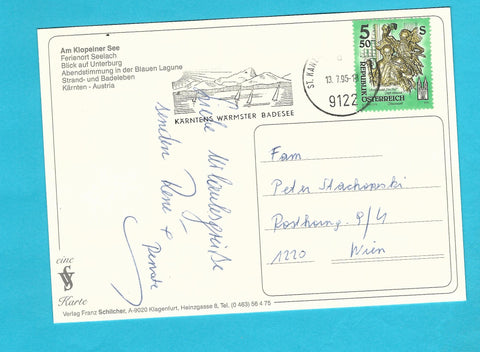 Am Klopeiner See
Ferienort Seelach
Blick auf Unterburg
Abendstimmung in der Blauen Lagune
Strand- und Badeleben
Kärnten - Austria
KÄRNTENS WÄRMSTER BADESEE
ST. KAN
13. 7. 95-1
9122
5
50
S
REPUBLIK
ÖSTERREICH
Urlaubsgrüße
senden Rene +
Renate
Fam
Peter Stachowski
9/4
1220 Wien
eine
VS
Karte
Verlag Franz Schilcher, A-9020 Klagenfurt, Heinzgasse 8, Tel. (0 463) 56 4 75